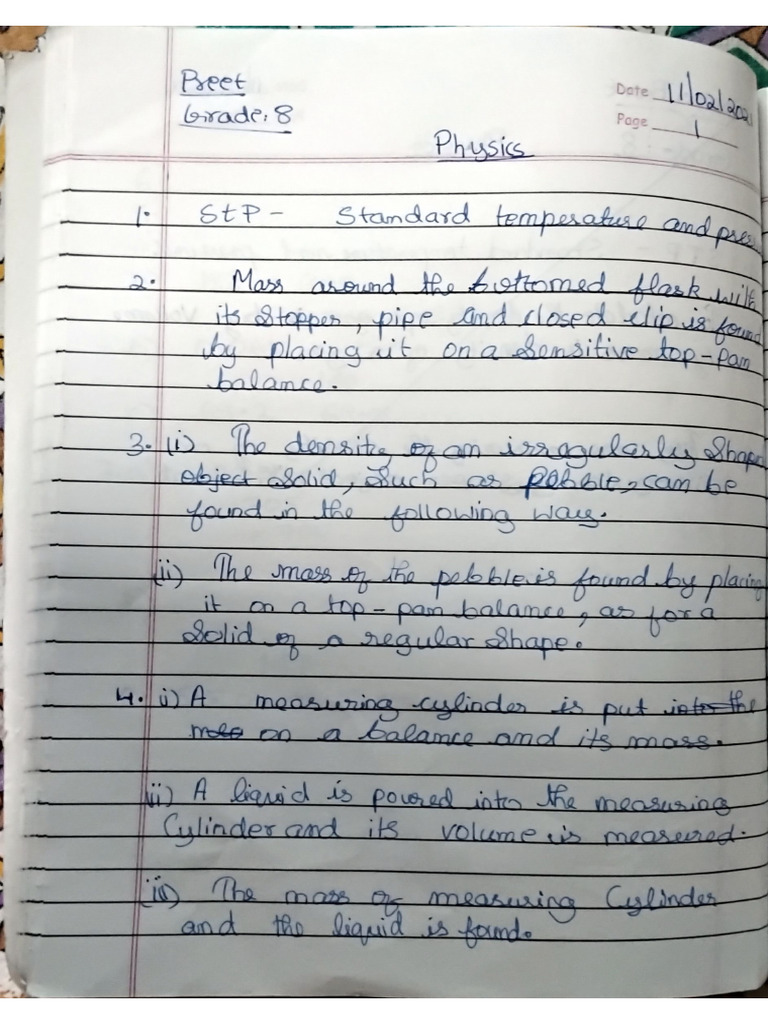 Preet
Grade: 8
Date 11/02/202
Page 1
Physics
1. StP - Standard temperature and pres
2. Mass around the bottomed flask with
its stopper, pipe and closed clip is found
by placing it on a sensitive top-pan
balance.
3. (i) The density of an irragularly shape
object solid, such as pebble, can be
found in the following way.
(ii) The mass of the pebble is found by placing
it on a top-pan balance, as for a
solid of a regular shape.
4. i) A measuring cylinder is put into the
on a balance and its mass.
ii) A liquid is poured into the measuring
Cylinder and its volume is measured.
(iii) The mass of measuring Cylinder
and the liquid is found.